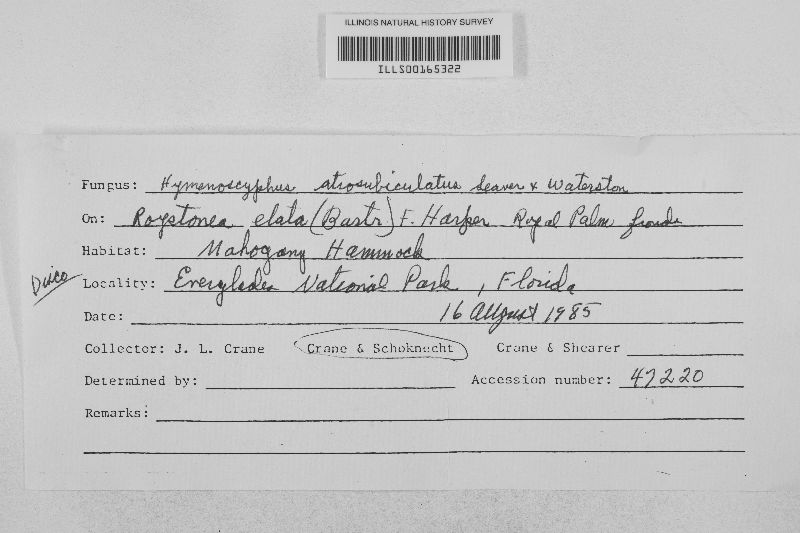 ILLINOIS NATURAL HISTORY SURVEY
ILLS00165322
Fungus: Hymenoscyphus atrosubiculatus Seaver & Waterston
On: Roystonea elata (Bartr) F. Harper Royal Palm fronds
Habitat: Mahogany Hammock
Locality: Everglades National Park, Florida
Date: 16 August 1985
Collector: J. L. Crane Crane & Schoknecht Crane & Shearer
Determined by: Accession number: 47220
Remarks: